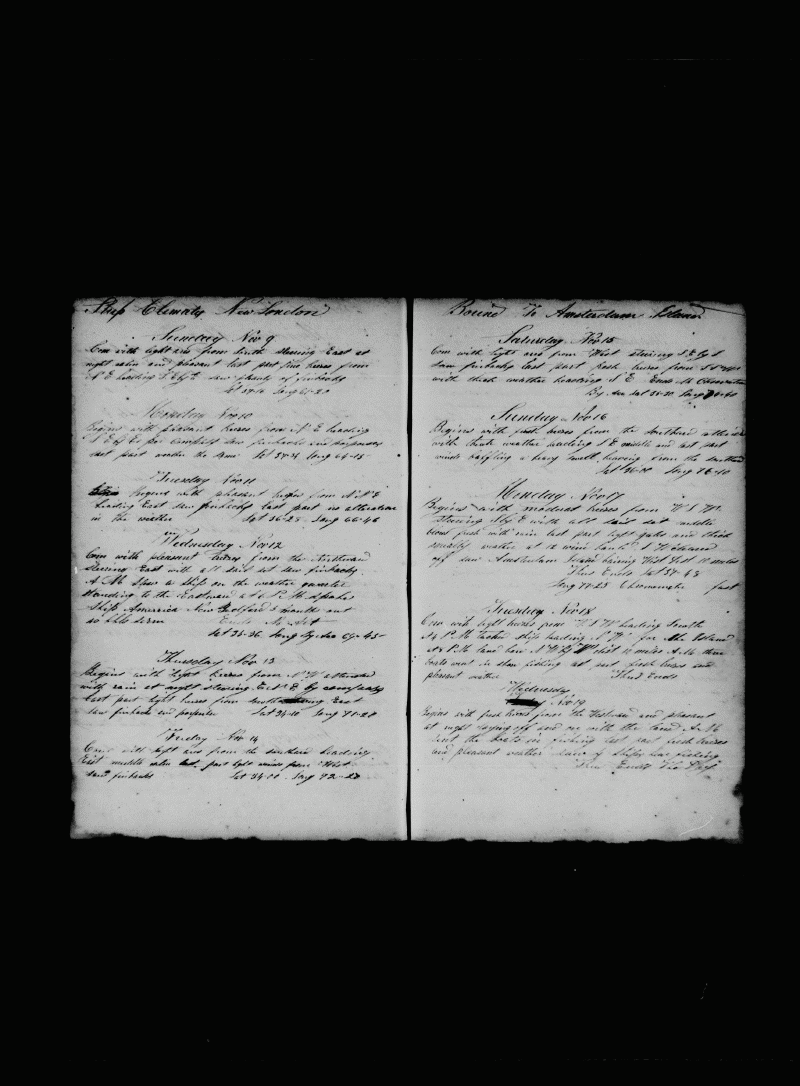 Ship Clematis New London
Sunday Nov 9
Com with light airs from South steering East at
night calm and pleasant last part fine breeses from
N E heading S E by E saw plenty of finbacks
Lat 37-14 Long 61-20
Monday Nov 10
Begins with pleasant breses from N E heading
S E by E per compass saw finbacks and porposes
last part weather the same Lat 38-21 Long 64-15
Tuesday Nov 11
Begins with pleasant breses from N N E
heading East saw finbacks last part no alteration
in the weather Lat 36-23 Long 66-46
Wednesday Nov 12
Com with pleasant breses from the Northward
steering East with all sail set saw finbacks
A M saw a ship on the weather quarter
standing to the Eastward at 6 P M spoke
Ship America New Bedford 5 months out
no bbls sperm Ends M Alt
Lat 35-36 Long by Lu 69-45
Thursday Nov 13
Begins with light breses from N W attended
with rain at night steering E N E by compass
last part light breses from East
saw finbacks and porposes Lat 34-10 Long 71-20
Friday Nov 14
Com with light airs from the southard heading
East middle calm last part light winds from West
saw finbacks Lat 34-00 Long 72-27
Bound To Amsterdam Island
Saturday Nov 15
Com with light airs from West steering S E by S
saw finbacks last part fresh breses from
with thick weather heading S E Ends M Observation
Lat 35-20 Long
Sunday Nov 16
Begins with fresh breses from the Southard attended
with thick weather heading S E middle and last part
winds baffling a heavy swell heaving from the southard
Lat 36-00 Long 76-10
Monday Nov 17
Begins with moderat breses from W S W
steering S by E with all sail set middle
blows fresh with rain last part light gales and thick
weather at 12 wore hauld S Westward
off saw Amsterdam Island baring West Dist 10 miles
Thus Ends Lat 37-48
Long 77-23 Chronometer fast
Tuesday Nov 18
Com with light breses from W S W heading South
At 8 P M Tacked ship heading N W for the Island
At 8 P M land bore N W by W dist 10 miles A M three
boats went in shore fishing last part fresh breses and
plesent weather Thus Ends
Wednesday
Nov 19
Begins with fresh breses from the Westward and pleasant
at night laying off and on with the land A M
sent the boats in fishing last part fresh breses
and pleasant weather
Thus Ends